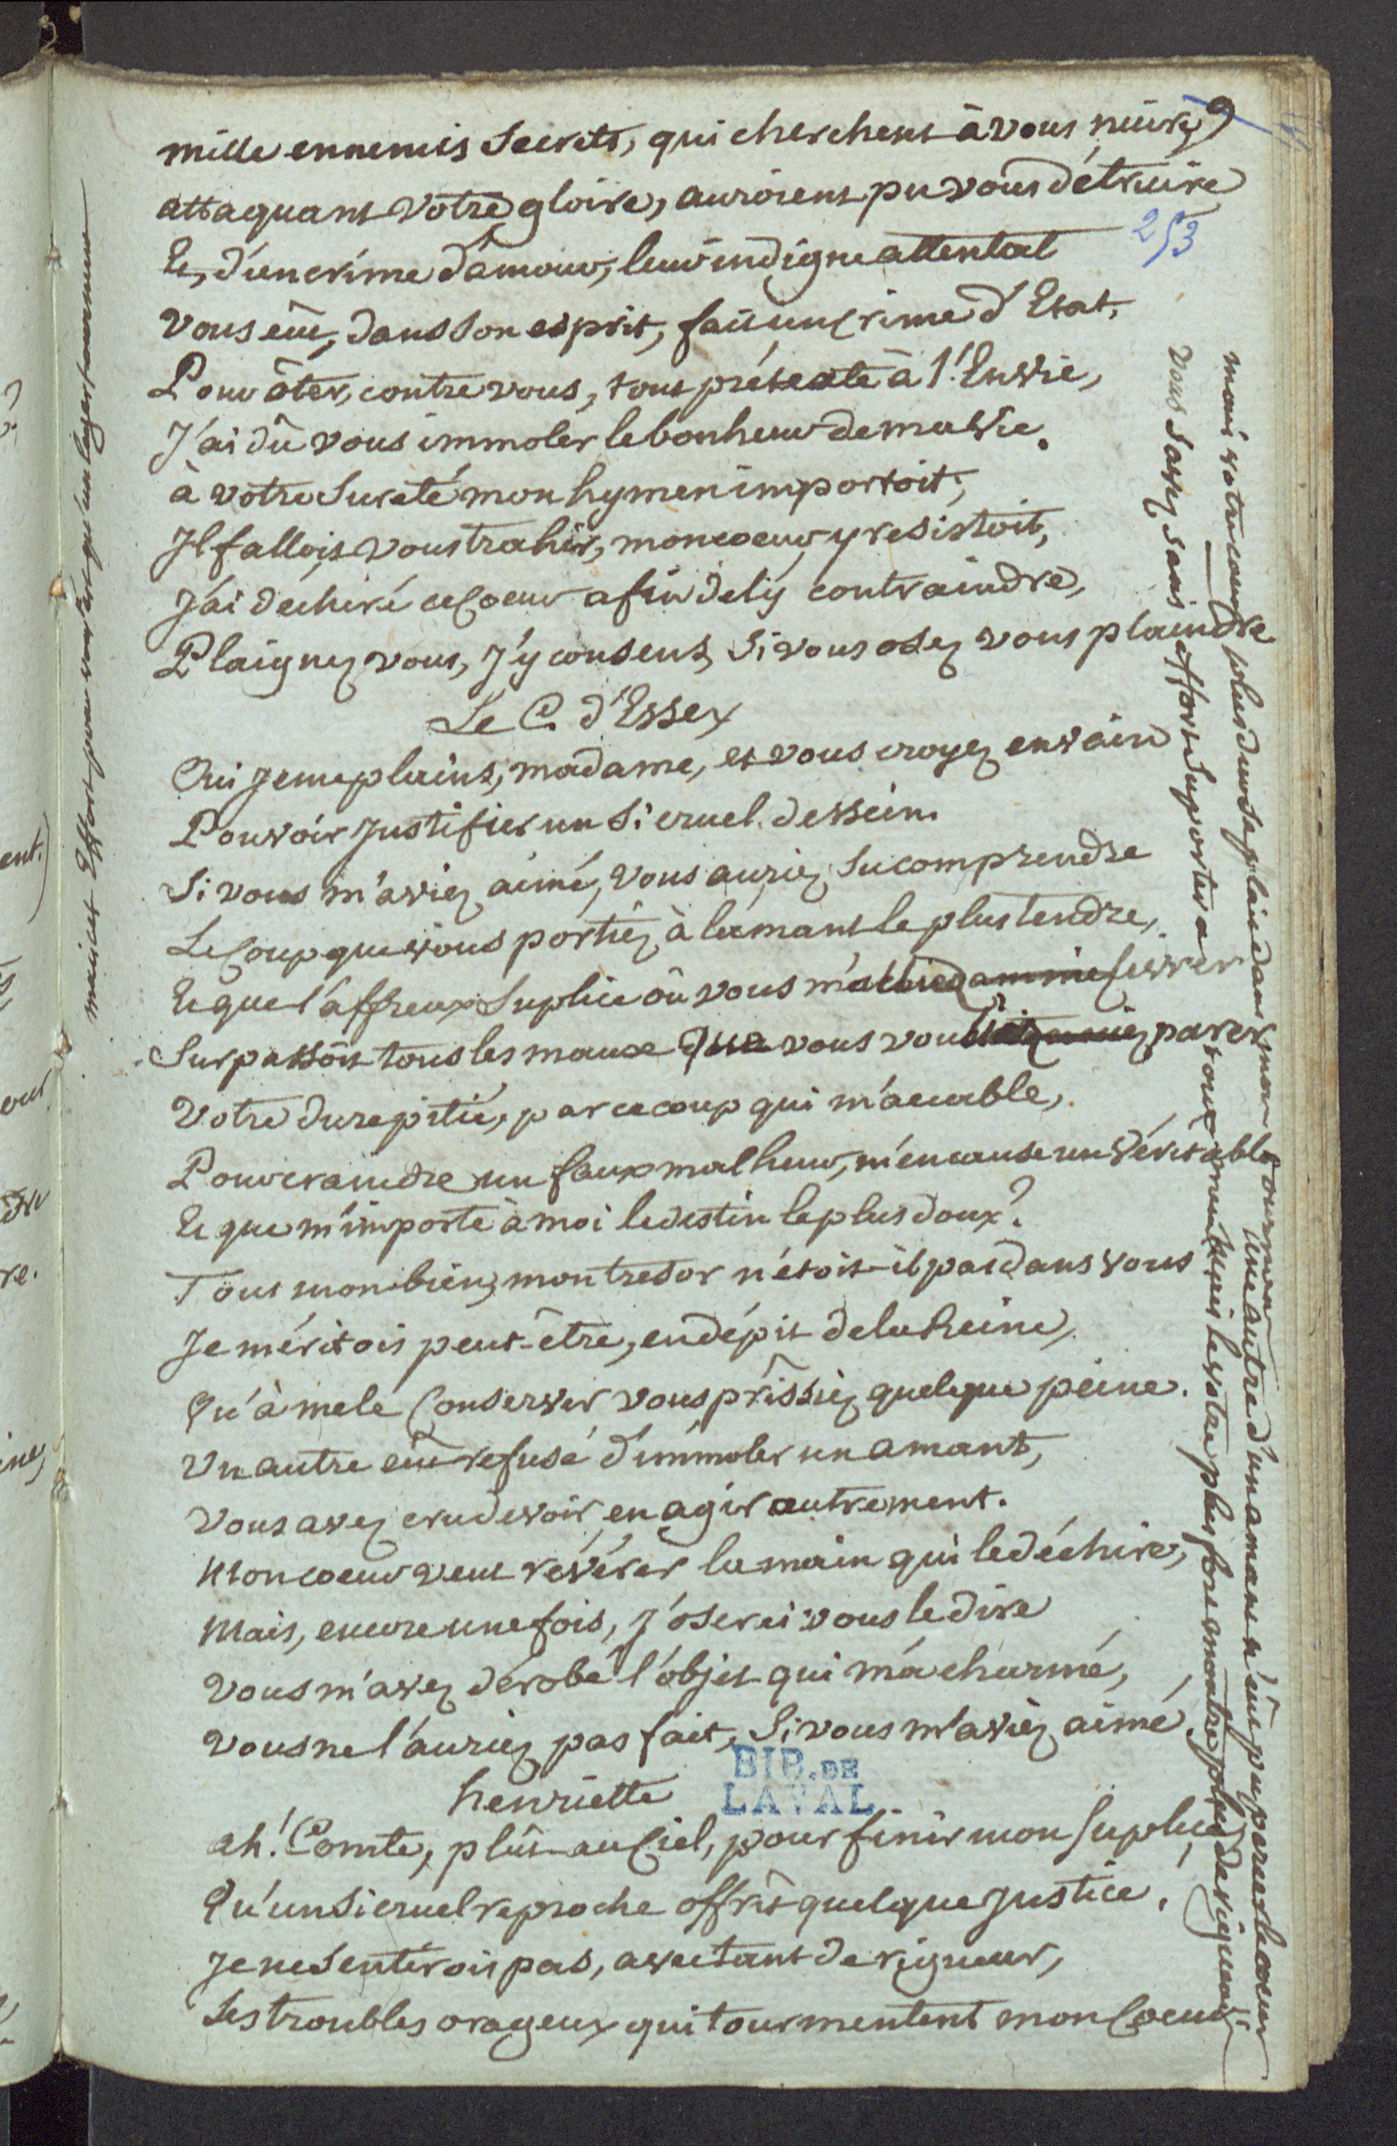 9
253
mille ennemis Secrets, qui cherchent à vous nuire,
attaquant votre gloire, auroient pu vous détruire
Et, d'un crime d'amour, leur indigne attentat
Vous eût, dans son esprit, fait un Crime d'Etat,
Pour ôter, contre vous, tout prétexte à l'Envie,
J'ai dû vous immoler le bonheur de ma vie.
à votre Sureté mon hymen importoit,
Il falloit vous trahir, mon coeur y resistoit,
J'ai dechiré ce Coeur afin de l'y contraindre,
Plaignez vous, J'y consens, Si vous osez vous plaindre
Le C. d'Essex
Oui Je me plains, madame, et vous croyez en vain
Pouvoir Justifier un Si cruel dessein.
Si vous m'aviez aimé, vous auriez Su comprendre
Le Coup que vous portiez à l'amant le plus tendre,
Et que l'affreux Suplice où vous m'alliez livrer
Surpassoit tous les maux que vous vouliez parer
Votre dure pitié, par ce coup qui m'accable,
Pour craindre un faux malheur, m'en cause un véritable
Et que m'importe à moi le destin le plus doux?
Tout mon bien, mon tresor n'étoit-il pas dans vous
Je méritois peut-être, en dépit de la Reine,
Qu'à me le Conserver vous prîssiez quelque peine.
Un autre eût refusé d'immoler un amant,
Vous avez cru devoir en agir autrement.
Mon coeur veut révérer la main qui le déchire,
Mais, encore une fois, J'oserai vous le dire
Vous m'avez dérobé l'objet qui m'a charmé,
Vous ne l'auriez pas fait, Si vous m'aviez aimé.
henriette
ah! Comte, plût au Ciel, pour finir mon Suplice,
Qu'un Si cruel reproche offrît quelque Justice.
Je ne Sentirois pas, avec tant de rigueur,
Les troubles orageux qui tourmentent mon Coeur
BIB. DE
LAVAL
mais votre coeur plus dur Se plait dans mon tourment
Une autre d'un amant n'eût pu percer le coeur
vous Savez Sans effort Suporter